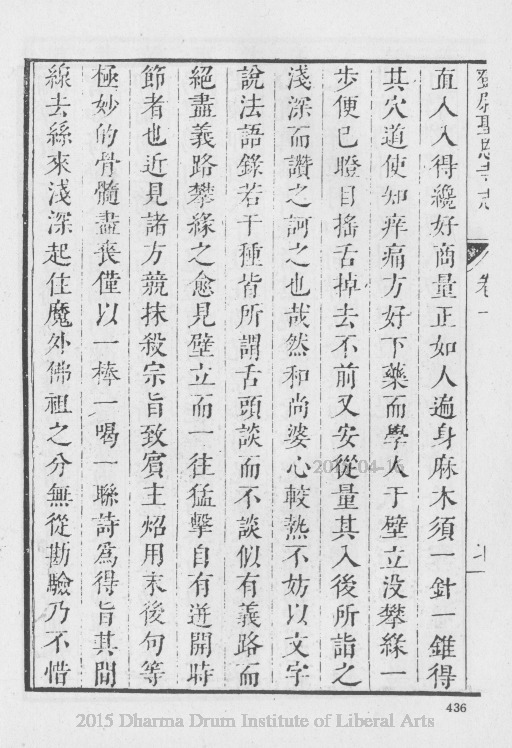 鄧尉聖恩寺志 卷一
直人入得纔好商量正如人遍身麻木須一針一錐得
其穴道使知痒痛方好下藥而學人于壁立没攀緣一
步便已瞪目搖舌掉去不前又安從量其入後所詣之
淺深而讚之訶之也哉然和尚婆心較熱不妨以文字
說法語錄若干種皆所謂舌頭談而不談似有義路而
絕盡義路攀緣之愈見壁立而一往猛擊自有迸開時
節者也近見諸方競抹殺宗旨致賓主炤用末後句等
極妙的骨髓盡喪僅以一棒一喝一聯詩爲得旨其間
線去絲來淺深起住魔外佛祖之分無從勘驗乃不惜
2015-04-16
436
2015 Dharma Drum Institute of Liberal Arts